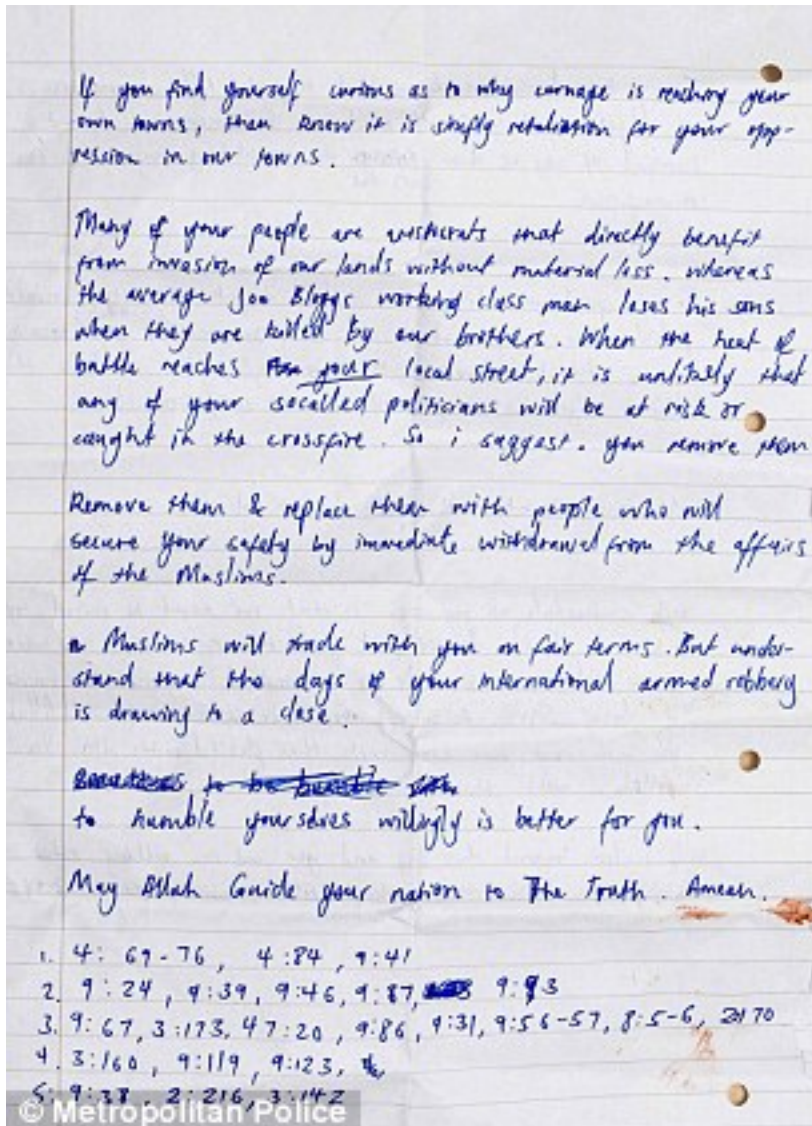 If you find yourself curious as to why carnage is reaching your
own towns, then know it is simply retaliation for your opp-
ression in our towns.
Many of your people are aristocrats that directly benefit
from invasion of our lands without material loss. whereas
the average Joe Bloggs working class man loses his sons
when they are killed by our brothers. When the heat of
battle reaches your local street, it is unlikely that
any of your socalled politicians will be at risk or
caught in the crossfire. So i suggest. you remove them
Remove them & replace them with people who will
secure your safety by immediate withdrawal from the affairs
of the Muslims.
Muslims will trade with you on fair terms. But under-
stand that the days of your international armed robbery
is drawing to a close.
to humble yourselves willingly is better for you.
May Allah Guide your nation to The Truth. Ameen.
1. 4: 69-76, 4:84, 9:41
2. 9:24, 9:39, 9:46, 9:87, 9:93
3. 9:67, 3:173, 47:20, 9:86, 9:31, 9:56-57, 8:5-6,
4. 3:160, 9:119, 9:123,
5. 9:38, 2:216, 3:142
© Metropolitan Police